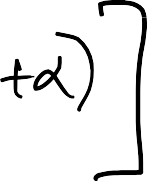 +α)]